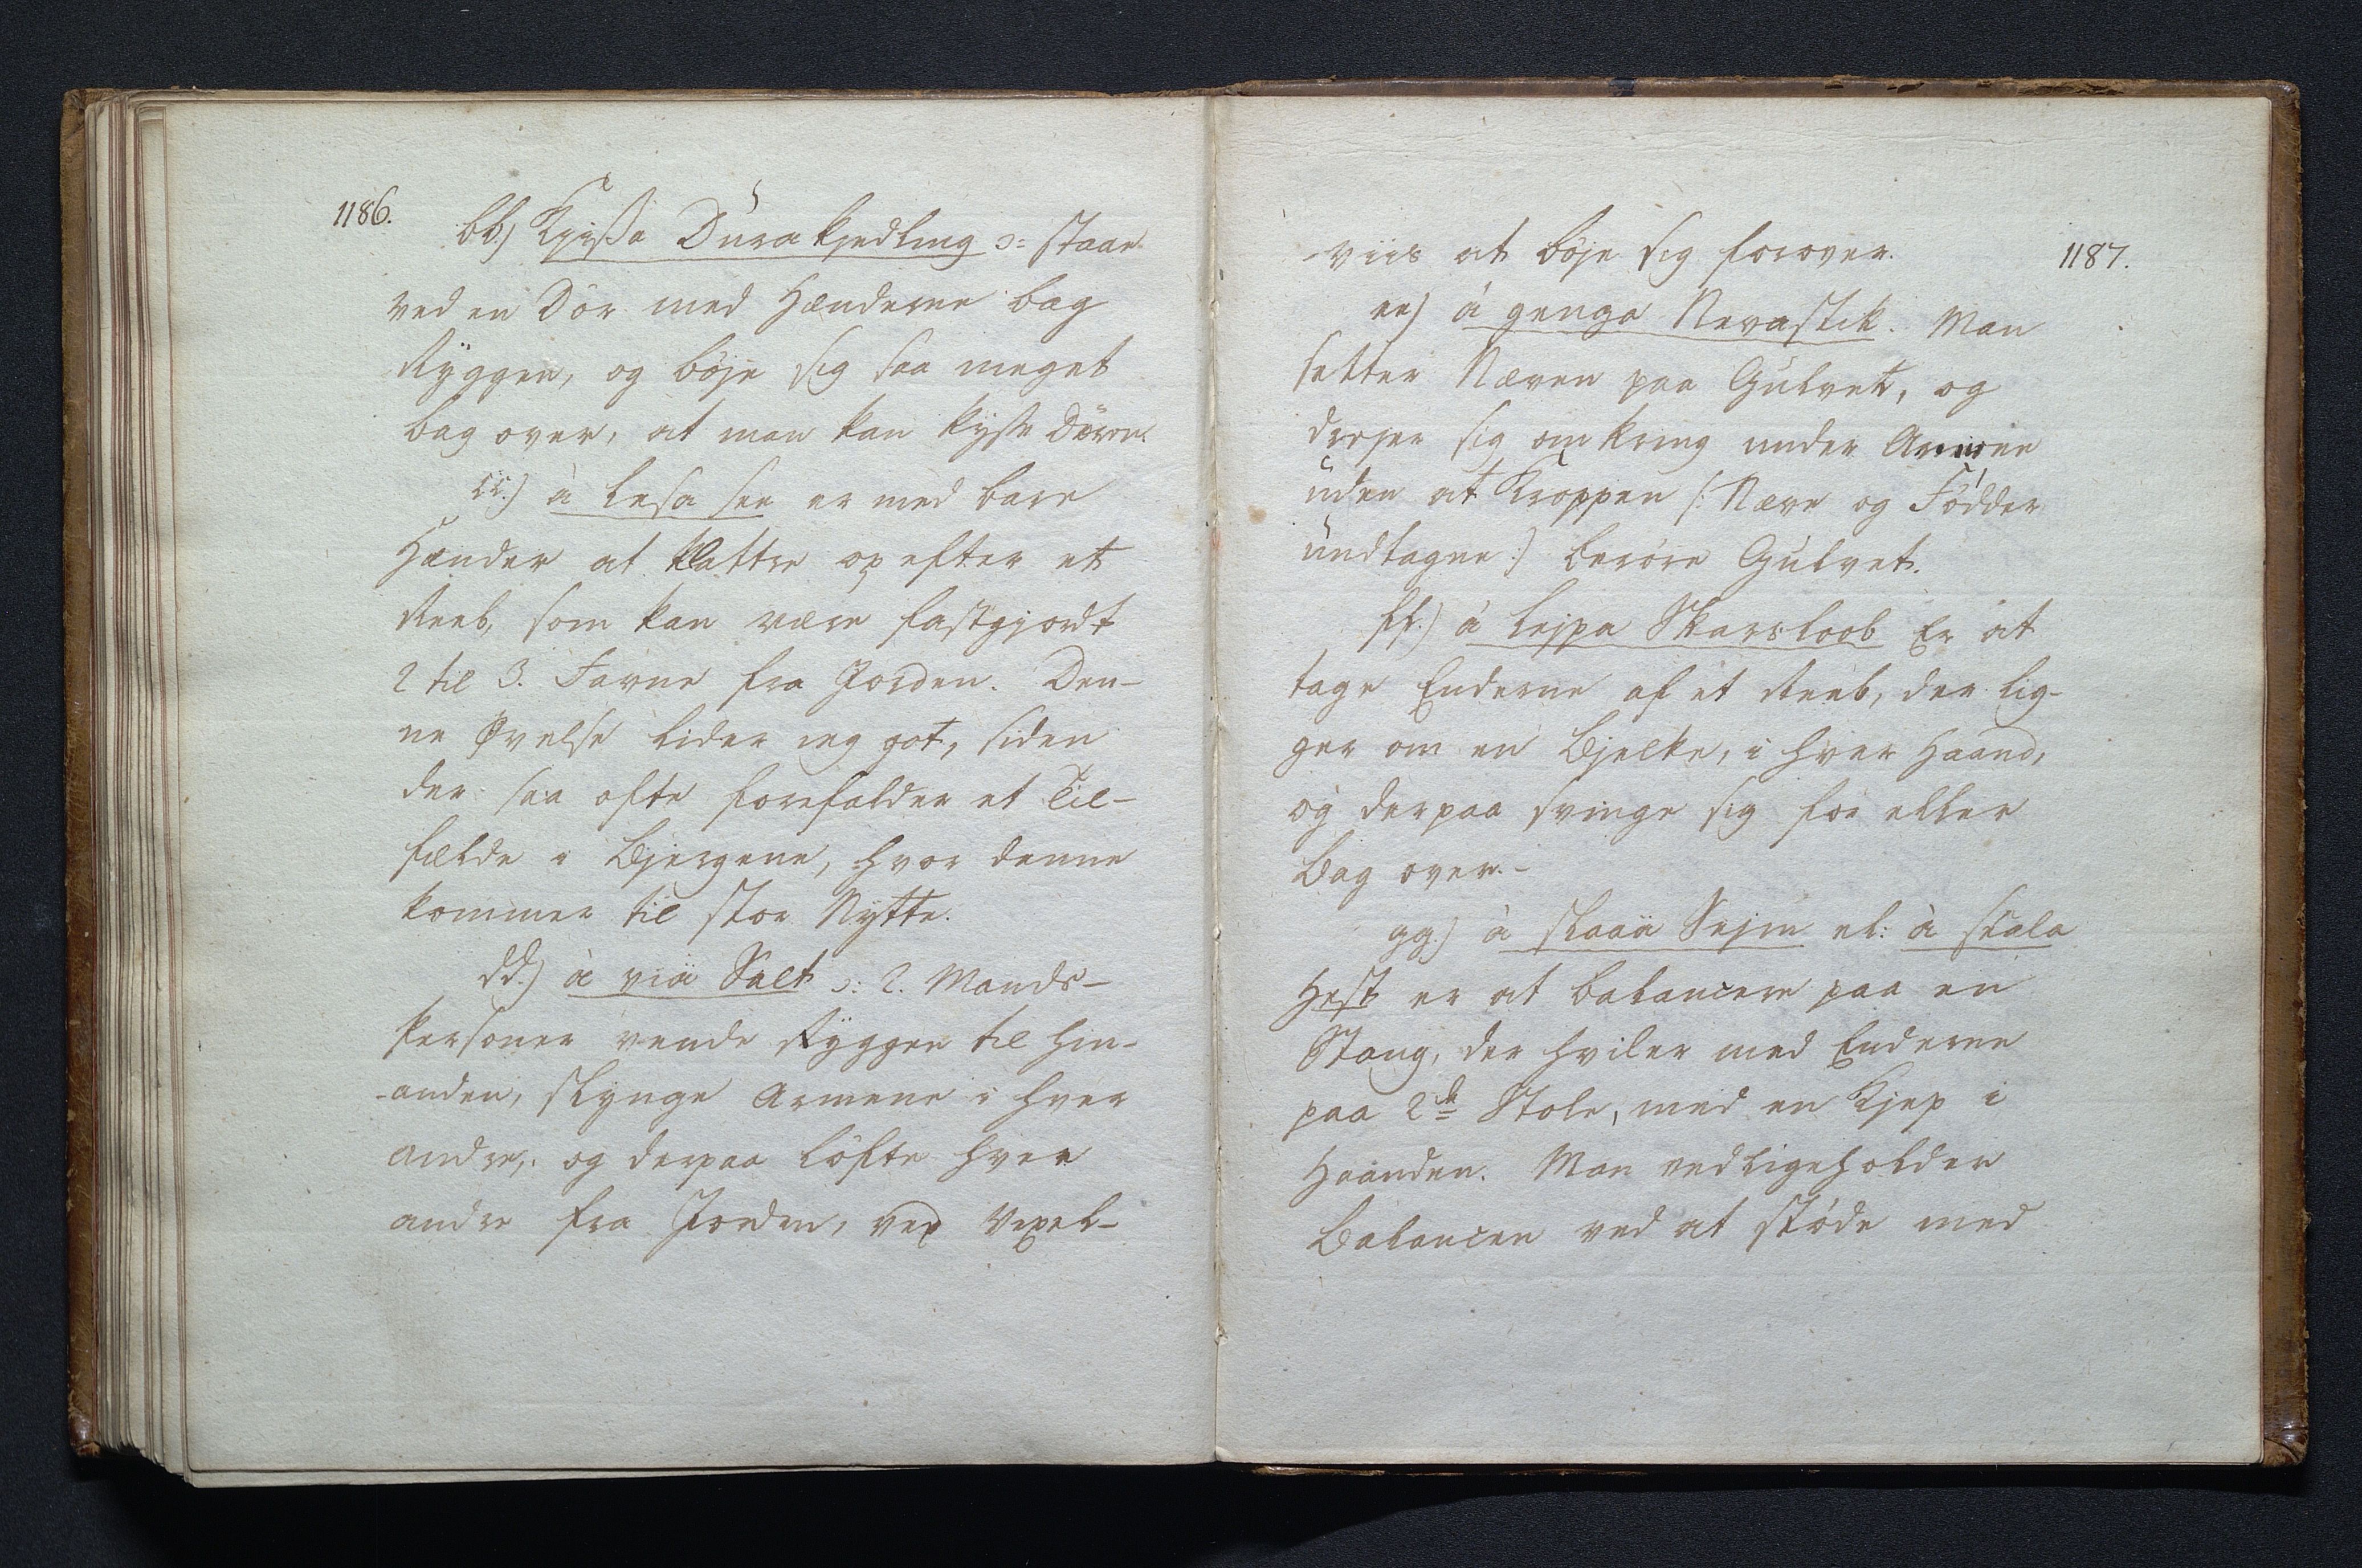 1186.
bb.) Kyssa Durakjedling ɔ: staar
ved en Dör med Hænderne bag
Ryggen, og böje sig saa meget
bag over, at man kan kysse Dören.
cc.) à lesa see er med bare
Hænder at klattre op efter et
Reeb, som kan være fastgjordt
2 til 3. Favne fra Jorden. Den-
ne Øvelse lider ieg got, siden
der saa ofte forefalder et Til-
fælde i Bjergene, hvor denne
kommer til stor Nytte.
dd.) à viä Salt ɔ: 2. Mands-
Personer vende Ryggen til hin-
-anden, slynge Armene i hver
andre, og derpaa löfte hver
andre fra Jorden, ved Vexel-
-viis at böje sig forover.
1187.
ee) à genga Nevastik. Man
setter Næven paa Gulvet, og
drejer sig omkring under Armen
uden at Kroppen /: Næve og Födder
undtagne :/ beröre Gulvet.
ff.) à lejpa Skarsloob Er at
tage Enderne af et Reeb, der lig-
ger om en Bjelke, i hver Haand,
og derpaa svinge sig for eller
Bag over.-
gg.) à slaaä Sejm el: à stala
Hest er at balancere paa en
Stang, der hviler med Enderne
paa 2de Stole, med en Kjep i
Haanden. Man vedligeholder
Balancen ved at stöde med